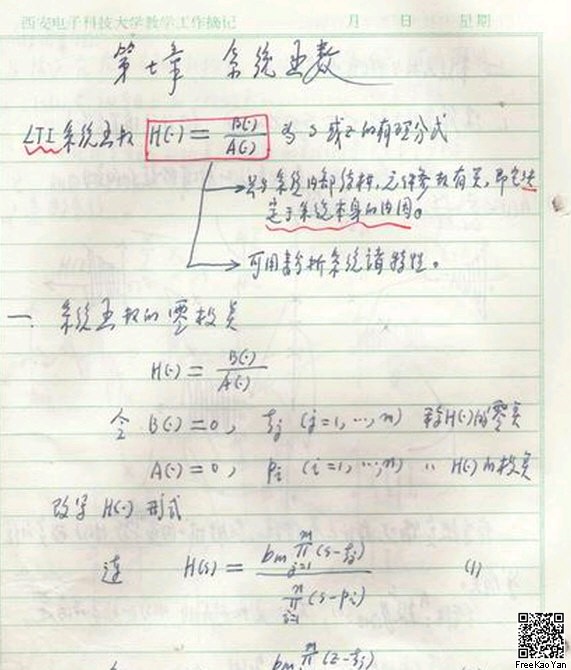 西安电子科技大学教学工作摘记 月 日 星期
第七章 系统函数
LTI系统函数 H(·) = B(·)/A(·) 为 s 或 z 的有理分式
只与系统内部结构,元件参数有关,即它决
定于系统本身的内因。
可用来分析系统诸特性。
一. 系统函数的零极点
H(·) = B(·)/A(·)
令 B(·)=0, ξj (j=1,…,m) 称H(·)的零点
A(·)=0, pi (i=1,…,n) 〃 H(·)的极点
改写 H(·) 形式
连 H(s) = bm ∏_{j=1}^{m} (s-ξj) / ∏_{i=1}^{n} (s-pi) (1)
bm ∏^{m} (z-ξj)
FreeKaoYan